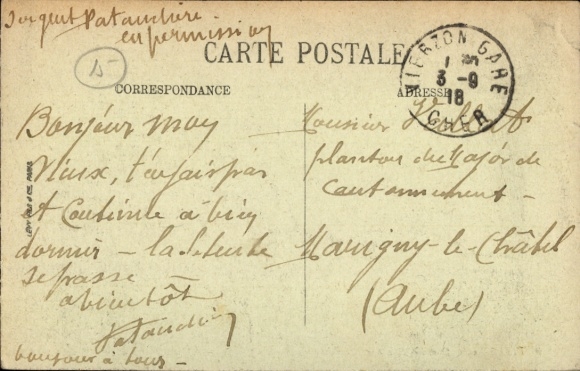 Sergent Patauchère
en permission
15
CARTE POSTALE
VIERZON GARE
3 -9
18
CHER
CORRESPONDANCE
ADRESSE
Bonjour mon
Vieux, t'en fais pas
et continue à bien
dormir - la
se passe
a bientôt
bonjour à tous -
LEVY FILS & CIE, PARIS
Monsieur
planton du Major de
cantonnement -
Marigny-le-Châtel
(Aube)